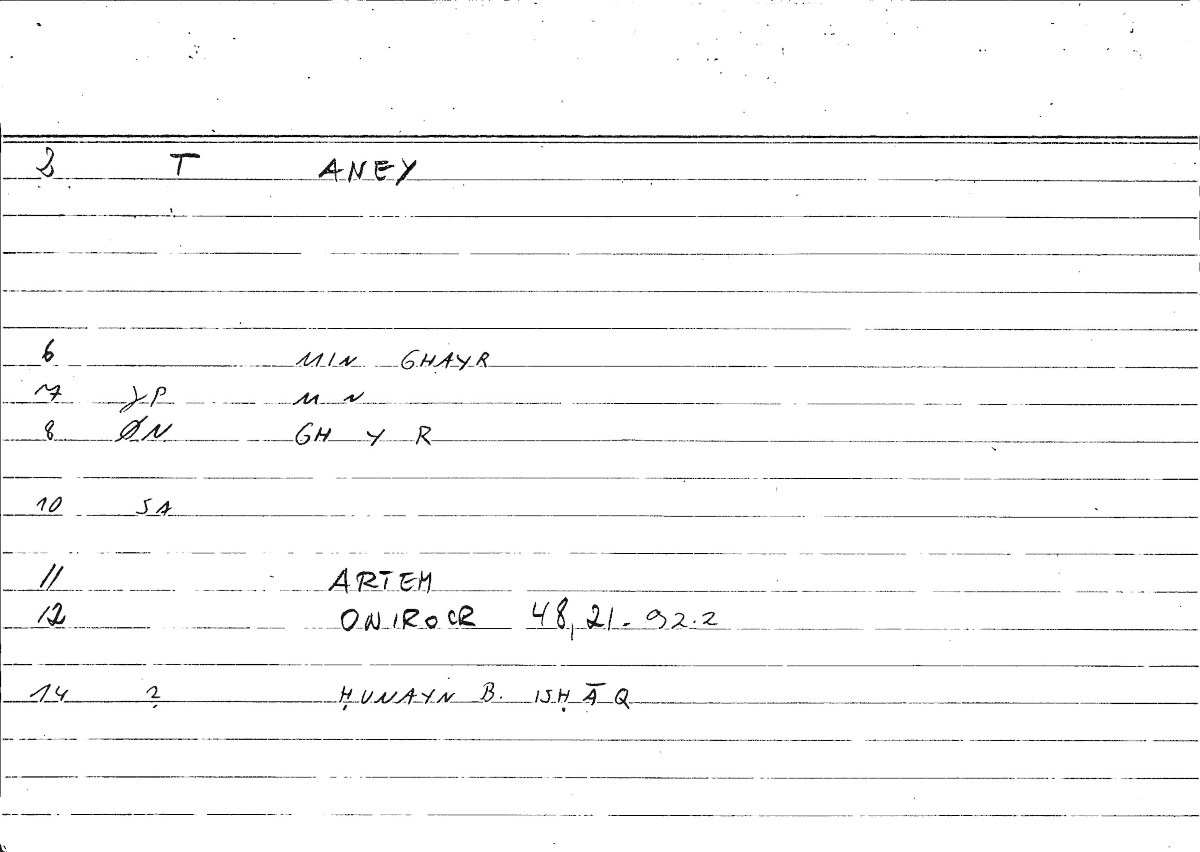 2 T ANEY
6 MIN GHAYR
7 γP M N
8 ØN GH Y R
10 SA
11 ARTEM
12 ONIROCR 48,21-92.2
14 ? ḤUNAYN B. ISḤĀQ